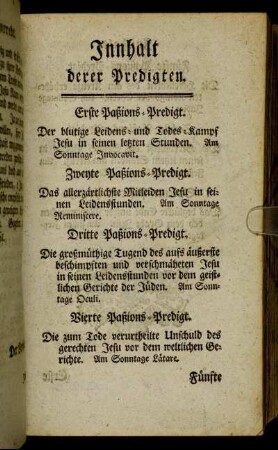 Innhalt
derer Predigten.
Erste Paßions-Predigt.
Der blutige Leidens- und Todes-Kampf
Jesu in seinen letzten Stunden. Am
Sonntage Invocavit.
Zweyte Paßions-Predigt.
Das allerzärtlichste Mitleiden Jesu in sei-
nen Leidensstunden. Am Sonntage
Reminiscere.
Dritte Paßions-Predigt.
Die großmüthige Tugend des aufs äußerste
beschimpften und verschmäheten Jesu
in seinen Leidensstunden vor dem geist-
lichen Gerichte der Jüden. Am Sonn-
tage Oculi.
Vierte Paßions-Predigt.
Die zum Tode verurtheilte Unschuld des
gerechten Jesu vor dem weltlichen Ge-
richte. Am Sonntage Lätare.
Fünfte